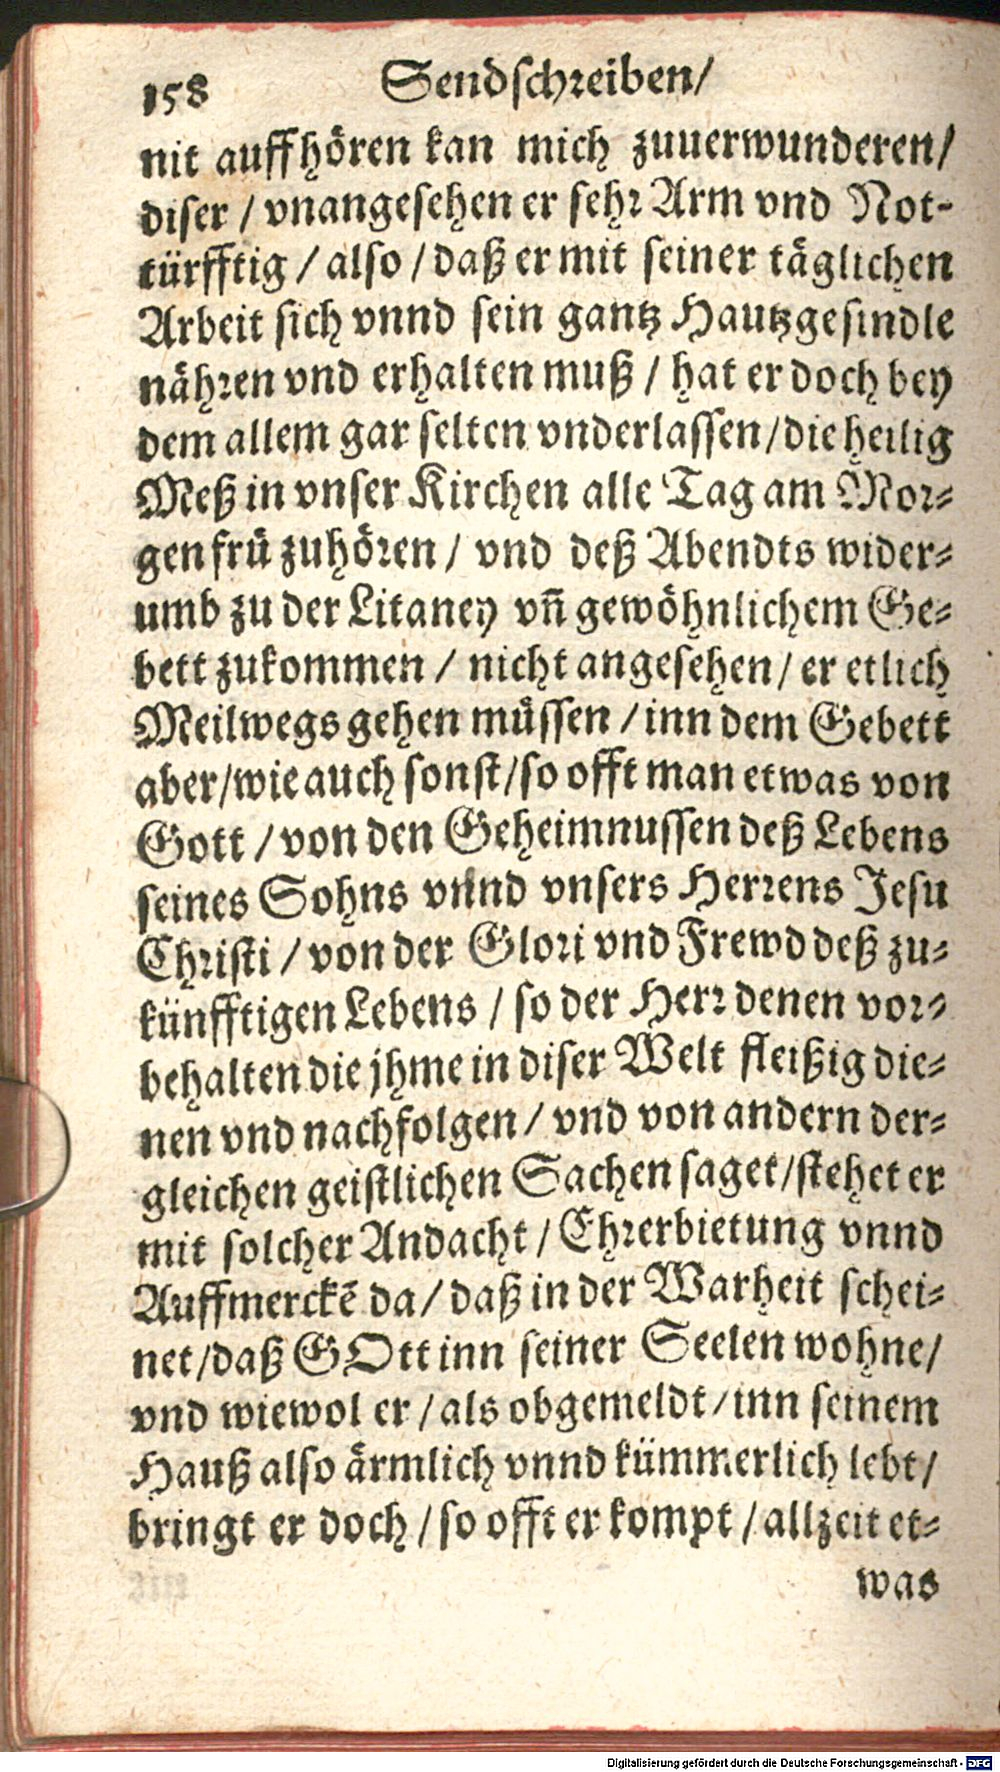 158 Sendschreiben/
nit auffhören kan mich zuuerwunderen/
diser / vnangesehen er sehr Arm vnd Not-
türfftig / also / daß er mit seiner täglichen
Arbeit sich vnnd sein gantz Hautzgesindle
nähren vnd erhalten muß / hat er doch bey
dem allem gar selten vnderlassen/die heilig
Meß in vnser Kirchen alle Tag am Mor-
gen frü zuhören / vnd deß Abendts wider-
umb zu der Litaney vñ gewöhnlichem Ge-
bett zukommen / nicht angesehen/ er etlich
Meilwegs gehen müssen / inn dem Gebett
aber/wie auch sonst/so offt man etwas von
Gott / von den Geheimnussen deß Lebens
seines Sohns vnnd vnsers Herrens Jesu
Christi / von der Glori vnd Frewd deß zu-
künfftigen Lebens / so der Herr denen vor-
behalten die jhme in diser Welt fleißig die-
nen vnd nachfolgen / vnd von andern der-
gleichen geistlichen Sachen saget/stehet er
mit solcher Andacht / Ehrerbietung vnnd
Auffmerckẽ da / daß in der Warheit schei-
net/daß GOtt inn seiner Seelen wohne/
vnd wiewol er / als obgemeldt / inn seinem
Hauß also ärmlich vnnd kümmerlich lebt /
bringt er doch / so offt er kompt / allzeit et-
was
Digitalisierung gefördert durch die Deutsche Forschungsgemeinschaft - DFG